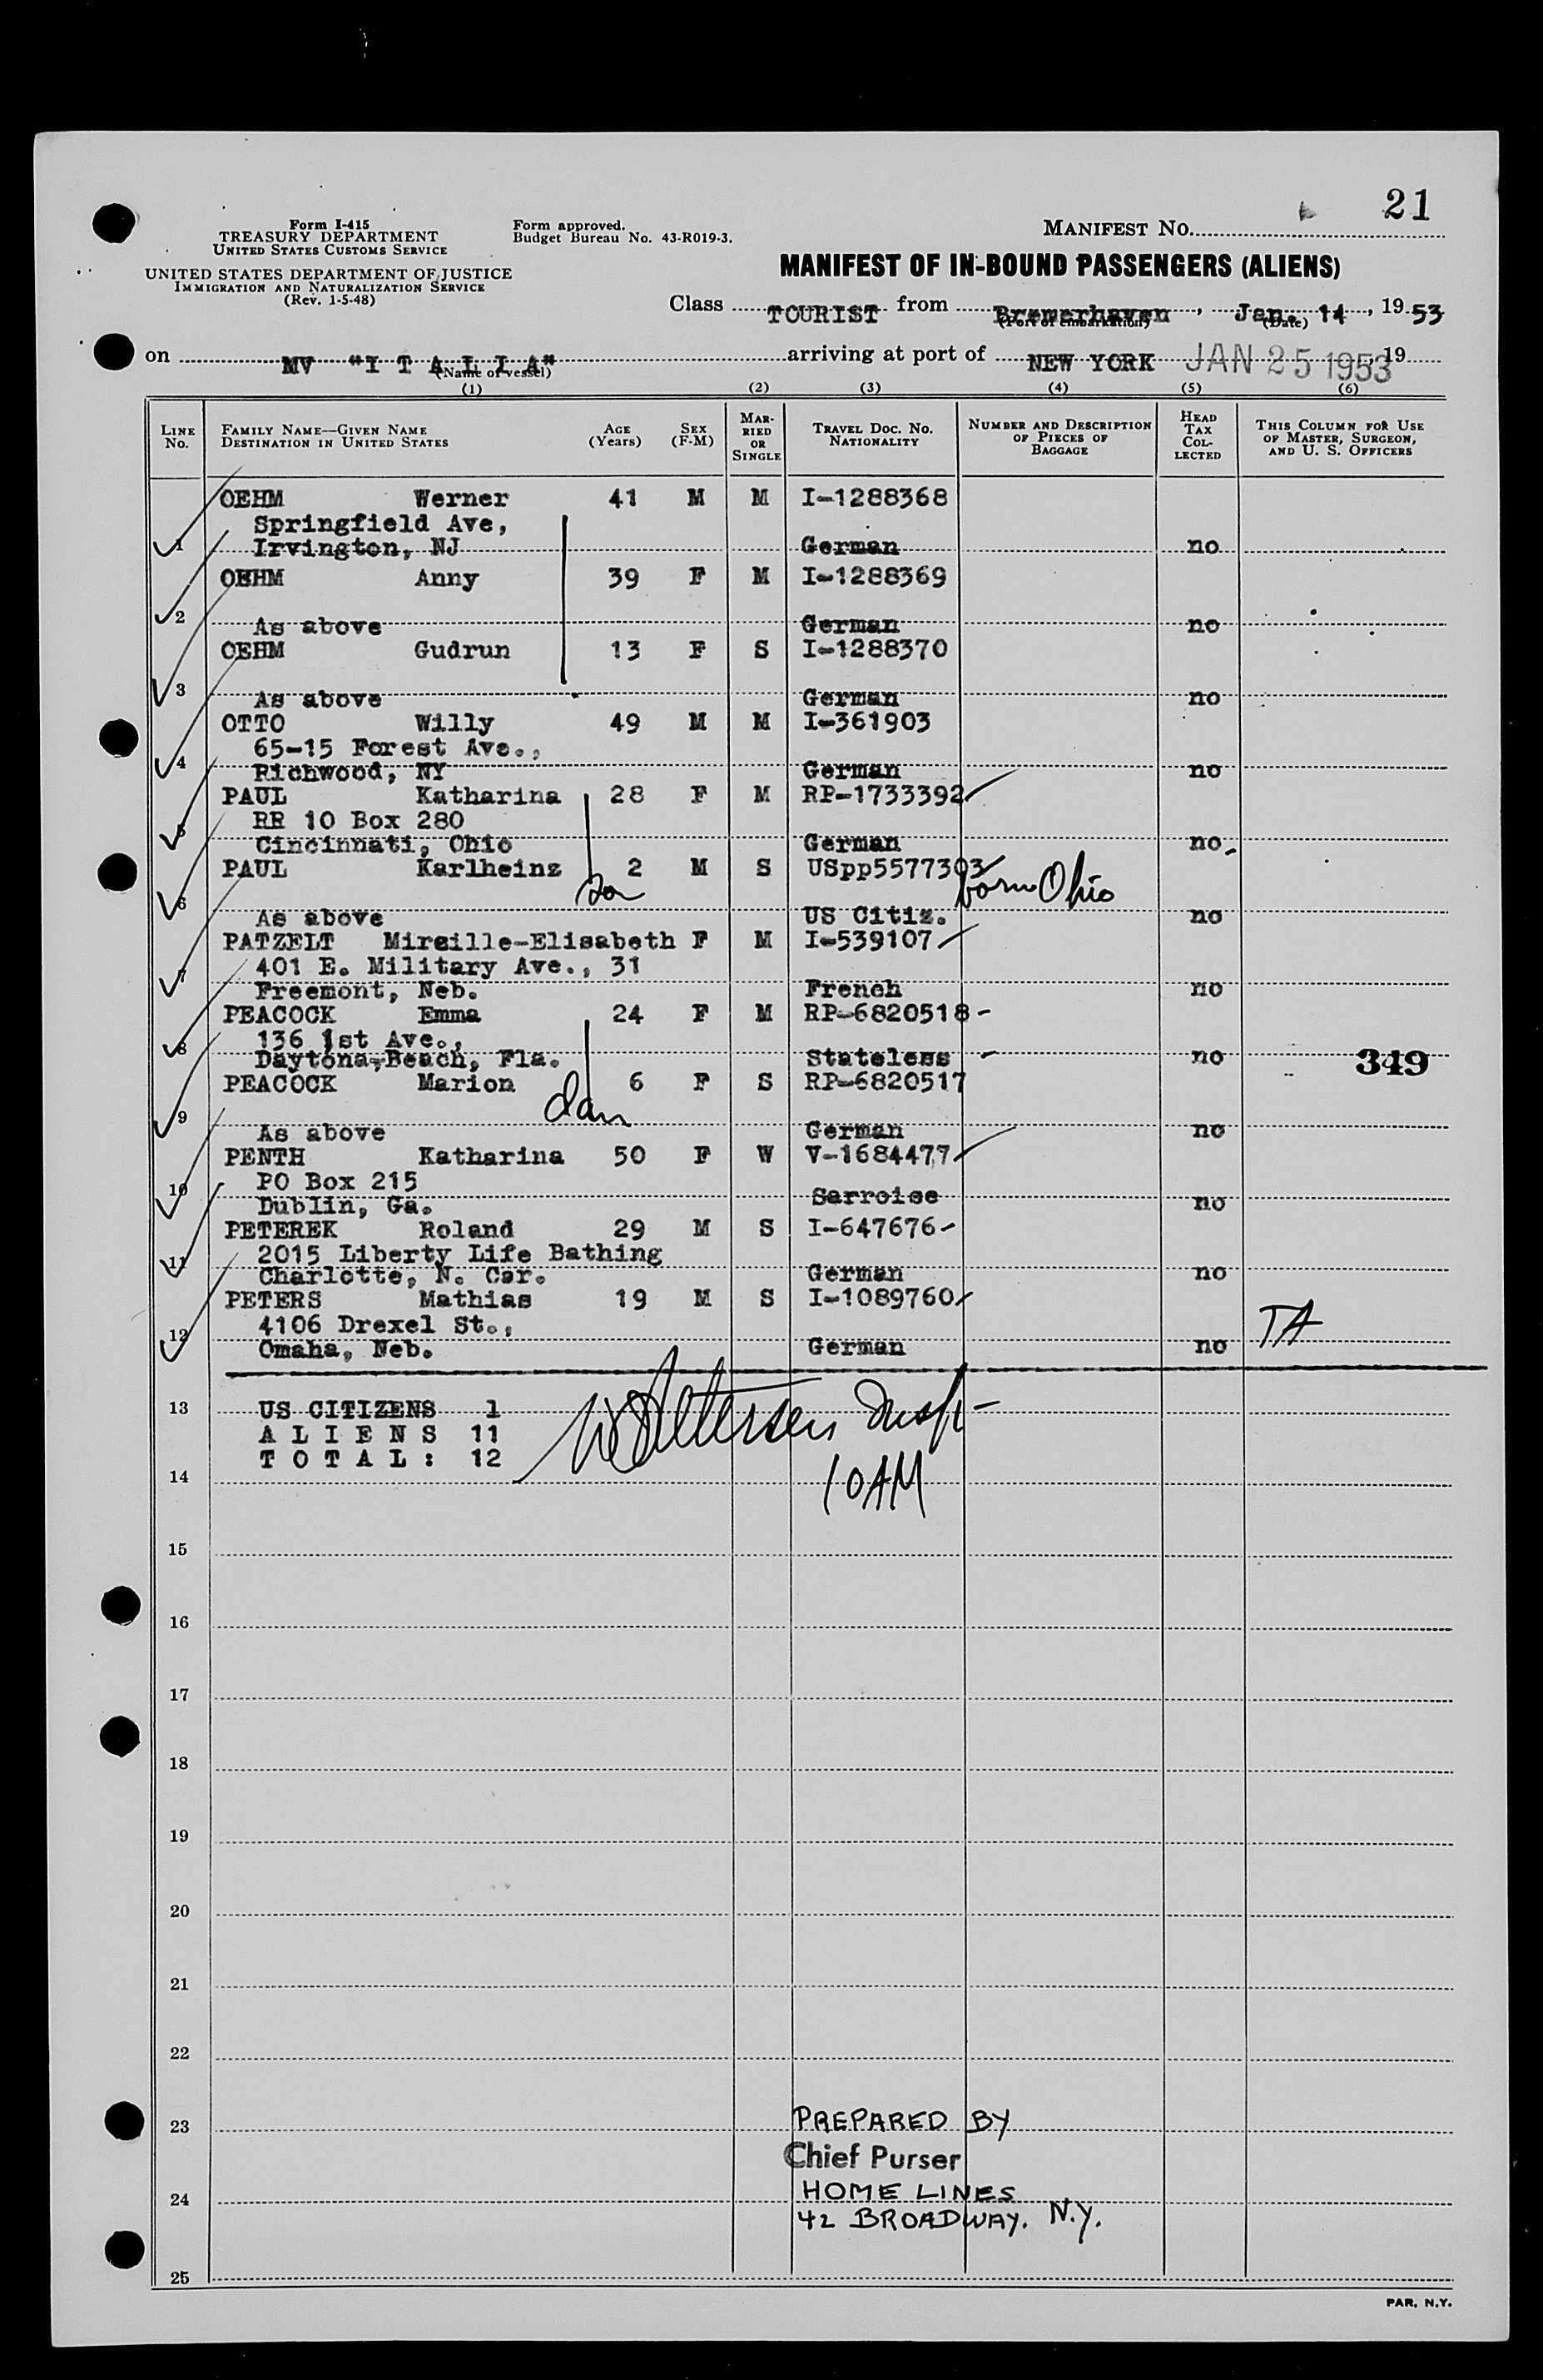 21
Form I-415
TREASURY DEPARTMENT
UNITED STATES CUSTOMS SERVICE
UNITED STATES DEPARTMENT OF JUSTICE
IMMIGRATION AND NATURALIZATION SERVICE
(Rev. 1-5-48)
Form approved.
Budget Bureau No. 43-R019-3.
MANIFEST NO.
MANIFEST OF IN-BOUND PASSENGERS (ALIENS)
Class TOURIST from Bremerhaven, Jan. 14, 1953
(Port of embarkation) (Date)
on MV "I T A L I A" arriving at port of NEW YORK JAN 25 1953, 19
(Name of vessel)
(1) (2) (3) (4) (5) (6)
LINE No. FAMILY NAME—GIVEN NAME DESTINATION IN UNITED STATES AGE (Years) SEX (F-M) MARRIED OR SINGLE TRAVEL DOC. NO. NATIONALITY NUMBER AND DESCRIPTION OF PIECES OF BAGGAGE HEAD TAX COLLECTED THIS COLUMN FOR USE OF MASTER, SURGEON, AND U. S. OFFICERS
OEHM Werner 41 M M I-1288368
Springfield Ave,
1 Irvington, NJ German no
OEHM Anny 39 F M I-1288369
2 As above German no
OEHM Gudrun 13 F S I-1288370
3 As above German no
OTTO Willy 49 M M I-361903
65-15 Forest Ave.,
4 Richwood, NY German no
PAUL Katharina 28 F M RP-1733392
RR 10 Box 280
5 Cincinnati, Ohio German no
PAUL Karlheinz 2 M S USpp5577303
son born Ohio
6 As above US Citiz. no
PATZELT Mireille-Elisabeth F M I-539107
401 E. Military Ave., 31
7 Freemont, Neb. French no
PEACOCK Emma 24 F M RP-6820518
136 1st Ave.,
8 Daytona-Beach, Fla. Stateless no 349
PEACOCK Marion 6 F S RP-6820517
dau
9 As above German no
PENTH Katharina 50 F W V-1684477
PO Box 215
10 Dublin, Ga. Sarroise no
PETEREK Roland 29 M S I-647676
2015 Liberty Life Bathing
11 Charlotte, N. Car. German no
PETERS Mathias 19 M S I-1089760
4106 Drexel St.,
12 Omaha, Neb. German no TA
13 US CITIZENS 1
A L I E N S 11
T O T A L : 12
Insp
10AM
14
15
16
17
18
19
20
21
22
23
24
25
PREPARED BY
Chief Purser
HOME LINES
42 BROADWAY. N.Y.
PAR, N.Y.